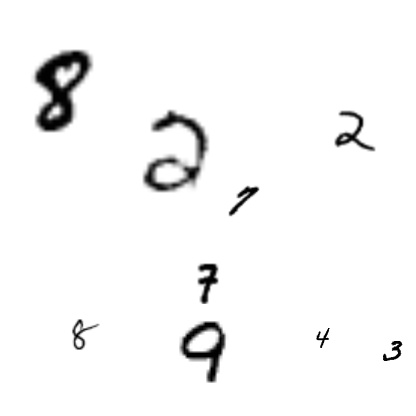 8
2 2
7
7
8 9 4 3